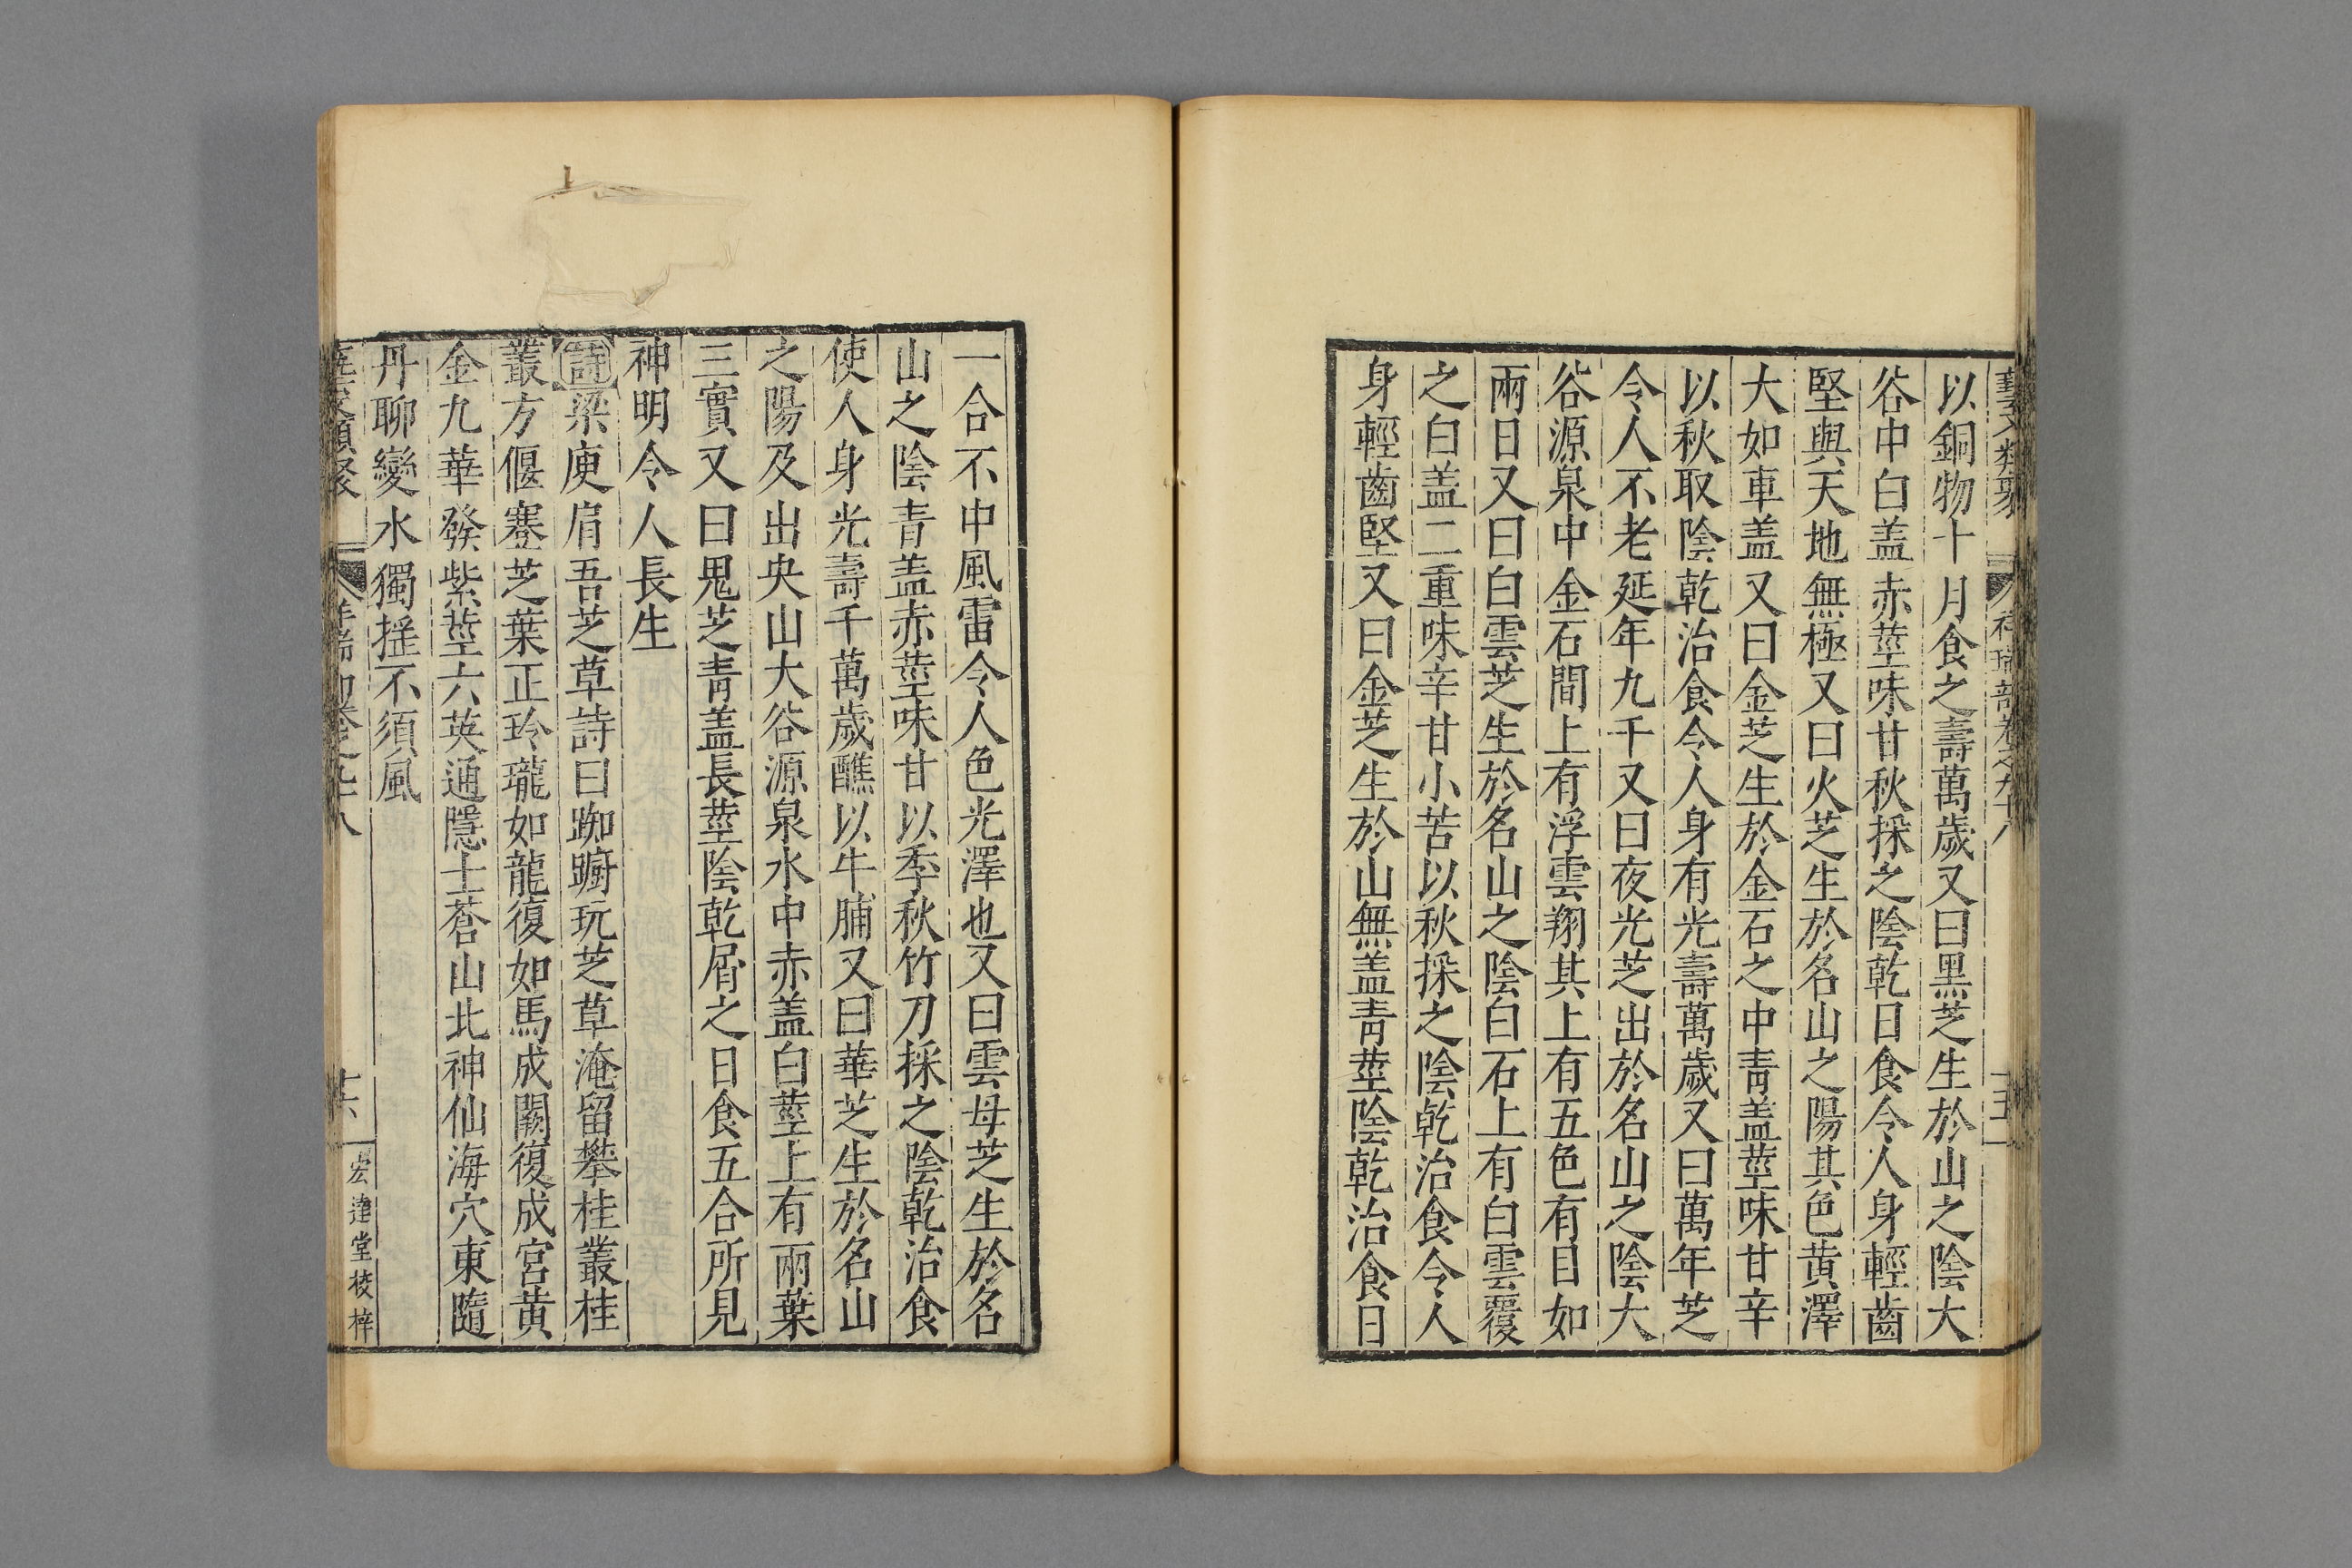 藝文類聚 祥瑞部卷之九十八 十五
以銅物十月食之壽萬歲又曰黑芝生於山之陰大
谷中白盖赤莖味甘秋採之陰乾日食令人身輕齒
堅與天地無極又曰火芝生於名山之陽其色黄澤
大如車盖又曰金芝生於金石之中青盖莖味甘辛
以秋取陰乾治食令人身有光壽萬歲又曰萬年芝
令人不老延年九千又曰夜光芝出於名山之陰大
谷源泉中金石間上有浮雲翔其上有五色有目如
兩日又曰白雲芝生於名山之陰白石上有白雲覆
之白盖二重味辛甘小苦以秋採之陰乾治食令人
身輕齒堅又曰金芝生於山無盖青莖陰乾治食日
一合不中風雷令人色光澤也又曰雲母芝生於名
山之陰青盖赤莖味甘以季秋竹刀採之陰乾治食
使人身光壽千萬歲醮以牛脯又曰華芝生於名山
之陽及出央山大谷源泉水中赤盖白莖上有兩葉
三實又曰鬼芝青盖長莖陰乾屑之日食五合所見
神明令人長生
詩梁庾肩吾芝草詩曰踟躕玩芝草淹留攀桂叢桂
叢方偃蹇芝葉正玲瓏如龍復如馬成闕復成宮黄
金九華發紫莖六英通隱士蒼山北神仙海穴東隨
丹聊變水獨揺不須風
類聚 卷之九十八 十六 宏達堂校梓